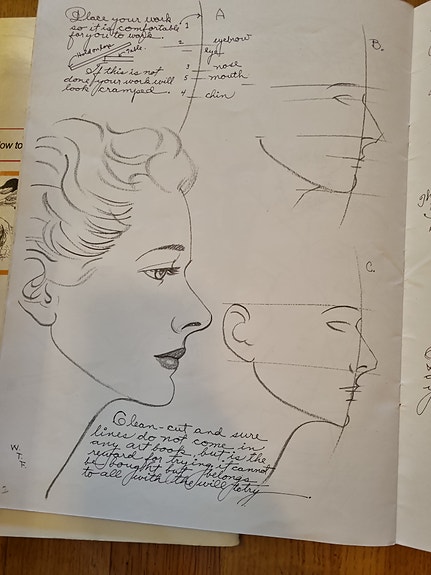 Place your work
so it is comfortable
for you to work.
Table.
If this is not
done your work will
look cramped.
A
1
2
eyebrow
eye
3
nose
5
mouth
4
chin
B.
C.
low to
Clean-cut and sure
lines do not come in
any art book, but is the
reward for trying it cannot
be bought but belongs
to all with the will to try
W.T.F.